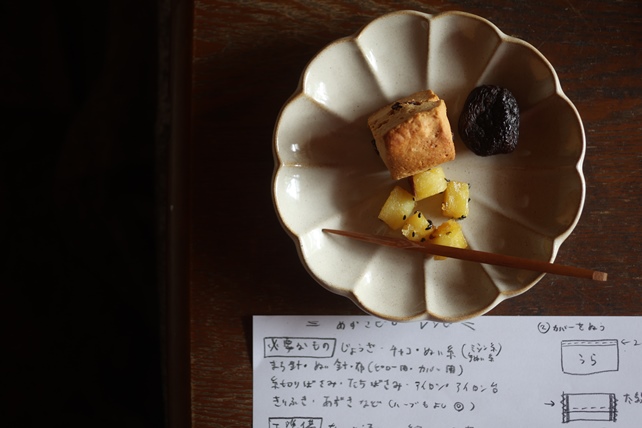 あずきピロー
必要なもの じょうぎ・チャコ・ぬい糸(ミシン糸 手ぬい糸)
まち針・ぬい針・布(ピロー用・カバー用)
糸切りばさみ・たちばさみ・アイロン・アイロン台
きりふき・あずき など(ハーブもよし)
② カバーをぬう
うら
→